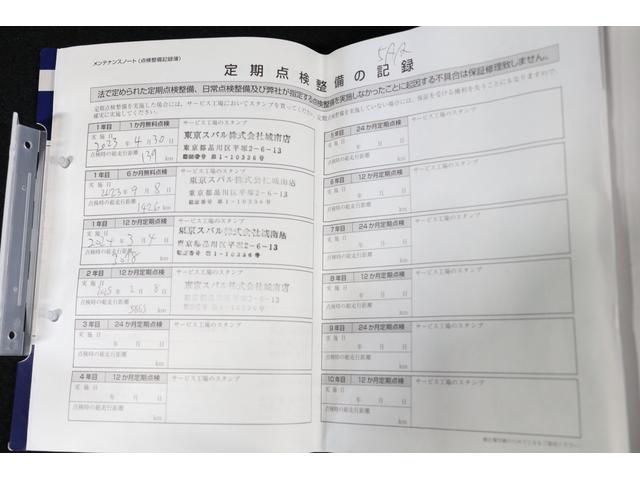 メンテナンスノート(点検整備記録簿)
定期点検整備の記録
法で定められた定期点検整備、日常点検整備及び弊社が指定する点検整備を実施しなかったことに起因する不具合は保証修理致しません。
定期点検整備を実施した場合には、サービス工場においてスタンプを貰ってください。定期点検整備を実施していない場合には、保証を受ける権利を失うことにもなりますので、
確実に実施してください。
1年目 1か月無料点検 サービス工場のスタンプ
実施日
2023年4月30日
点検時の総走行距離
139 km
東京スバル株式会社城南店
東京都品川区平塚2-6-13
1年目 6か月無料点検 サービス工場のスタンプ
実施日
2023年9月8日
点検時の総走行距離
1426 km
東京スバル株式会社城南店
東京都品川区平塚2-6-13
1年目 12か月定期点検 サービス工場のスタンプ
実施日
2024年3月4日
点検時の総走行距離
km
東京スバル株式会社城南店
東京都品川区平塚2-6-13
2年目 12か月定期点検 サービス工場のスタンプ
実施日
2025年2月8日
点検時の総走行距離
5863 km
東京スバル株式会社城南店
東京都品川区平塚2-6-13
3年目 24か月定期点検 サービス工場のスタンプ
実施日
年 月 日
点検時の総走行距離
km
4年目 12か月定期点検 サービス工場のスタンプ
実施日
年 月 日
点検時の総走行距離
km
5年目 24か月定期点検 サービス工場のスタンプ
実施日
年 月 日
点検時の総走行距離
km
6年目 12か月定期点検 サービス工場のスタンプ
実施日
年 月 日
点検時の総走行距離
km
7年目 24か月定期点検 サービス工場のスタンプ
実施日
年 月 日
点検時の総走行距離
km
8年目 12か月定期点検 サービス工場のスタンプ
実施日
年 月 日
点検時の総走行距離
km
9年目 24か月定期点検 サービス工場のスタンプ
実施日
年 月 日
点検時の総走行距離
km
10年目 12か月定期点検 サービス工場のスタンプ
実施日
年 月 日
点検時の総走行距離
km